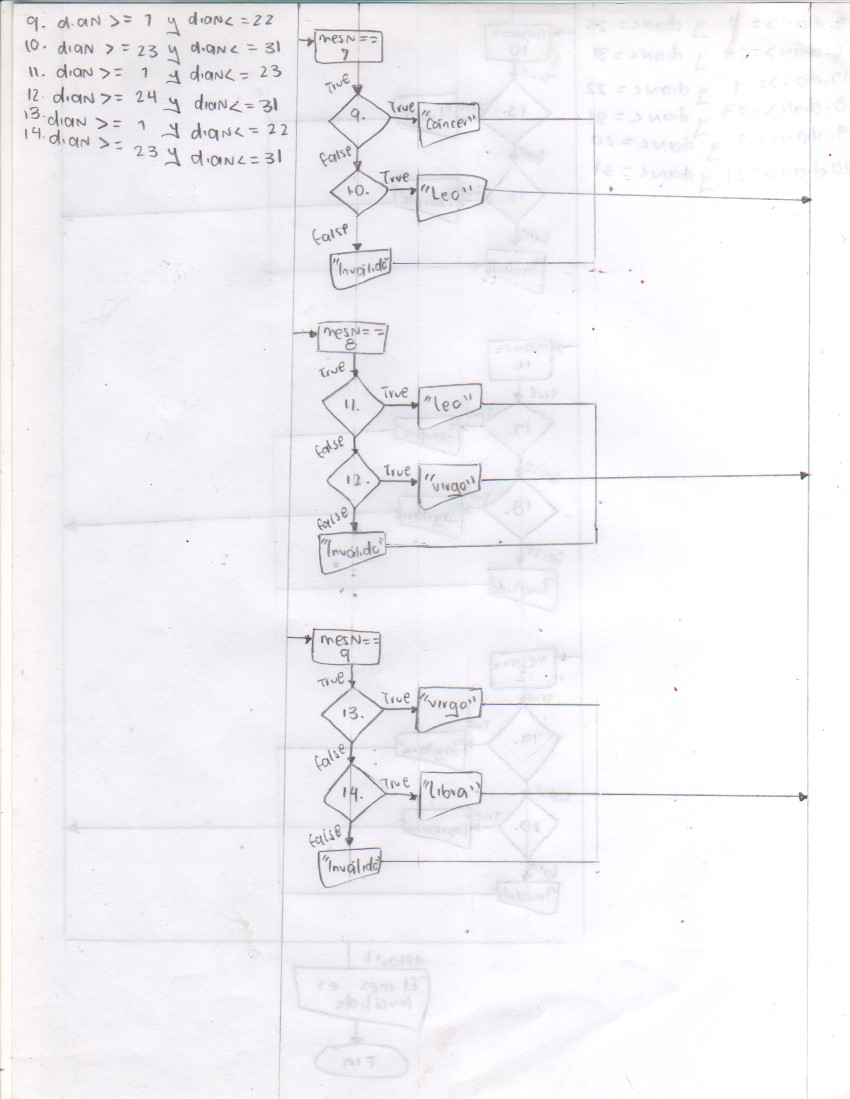 9. dian >= 1 y dian <= 22
10. dian >= 23 y dian <= 31
11. dian >= 1 y dian <= 23
12. dian >= 24 y dian <= 31
13. dian >= 1 y dian <= 22
14. dian >= 23 y dian <= 31
mesN==
7
True
9.
True
"Cancer"
False
10.
True
"Leo"
False
"Invalido"
mesN==
8
True
11.
True
"Leo"
False
12.
True
"virgo"
False
"Invalido"
mesN==
9
True
13.
True
"virgo"
False
14.
True
"Libra"
False
"Invalido"